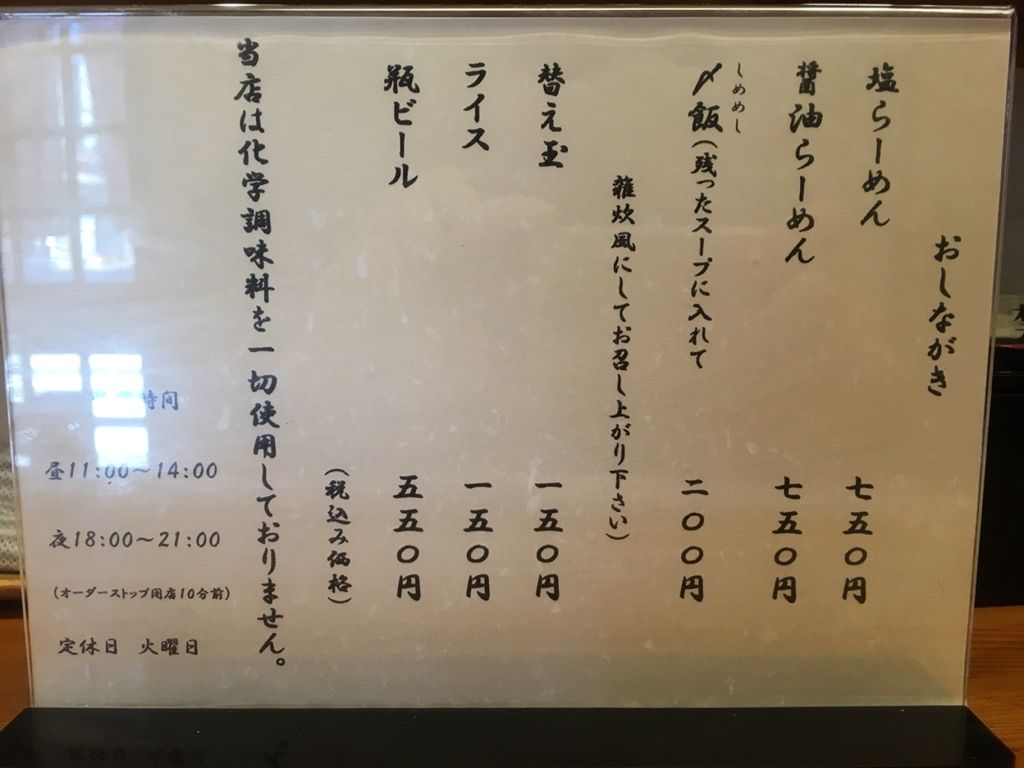 おしながき
塩らーめん 七五〇円
醤油らーめん 七五〇円
しめめし
〆飯(残ったスープに入れて 二〇〇円
雑炊風にしてお召し上がり下さい)
替え玉 一五〇円
ライス 一五〇円
瓶ビール 五五〇円
(税込み価格)
当店は化学調味料を一切使用しておりません。
時間
昼11:00～14:00
夜18:00～21:00
(オーダーストップ閉店10分前)
定休日 火曜日